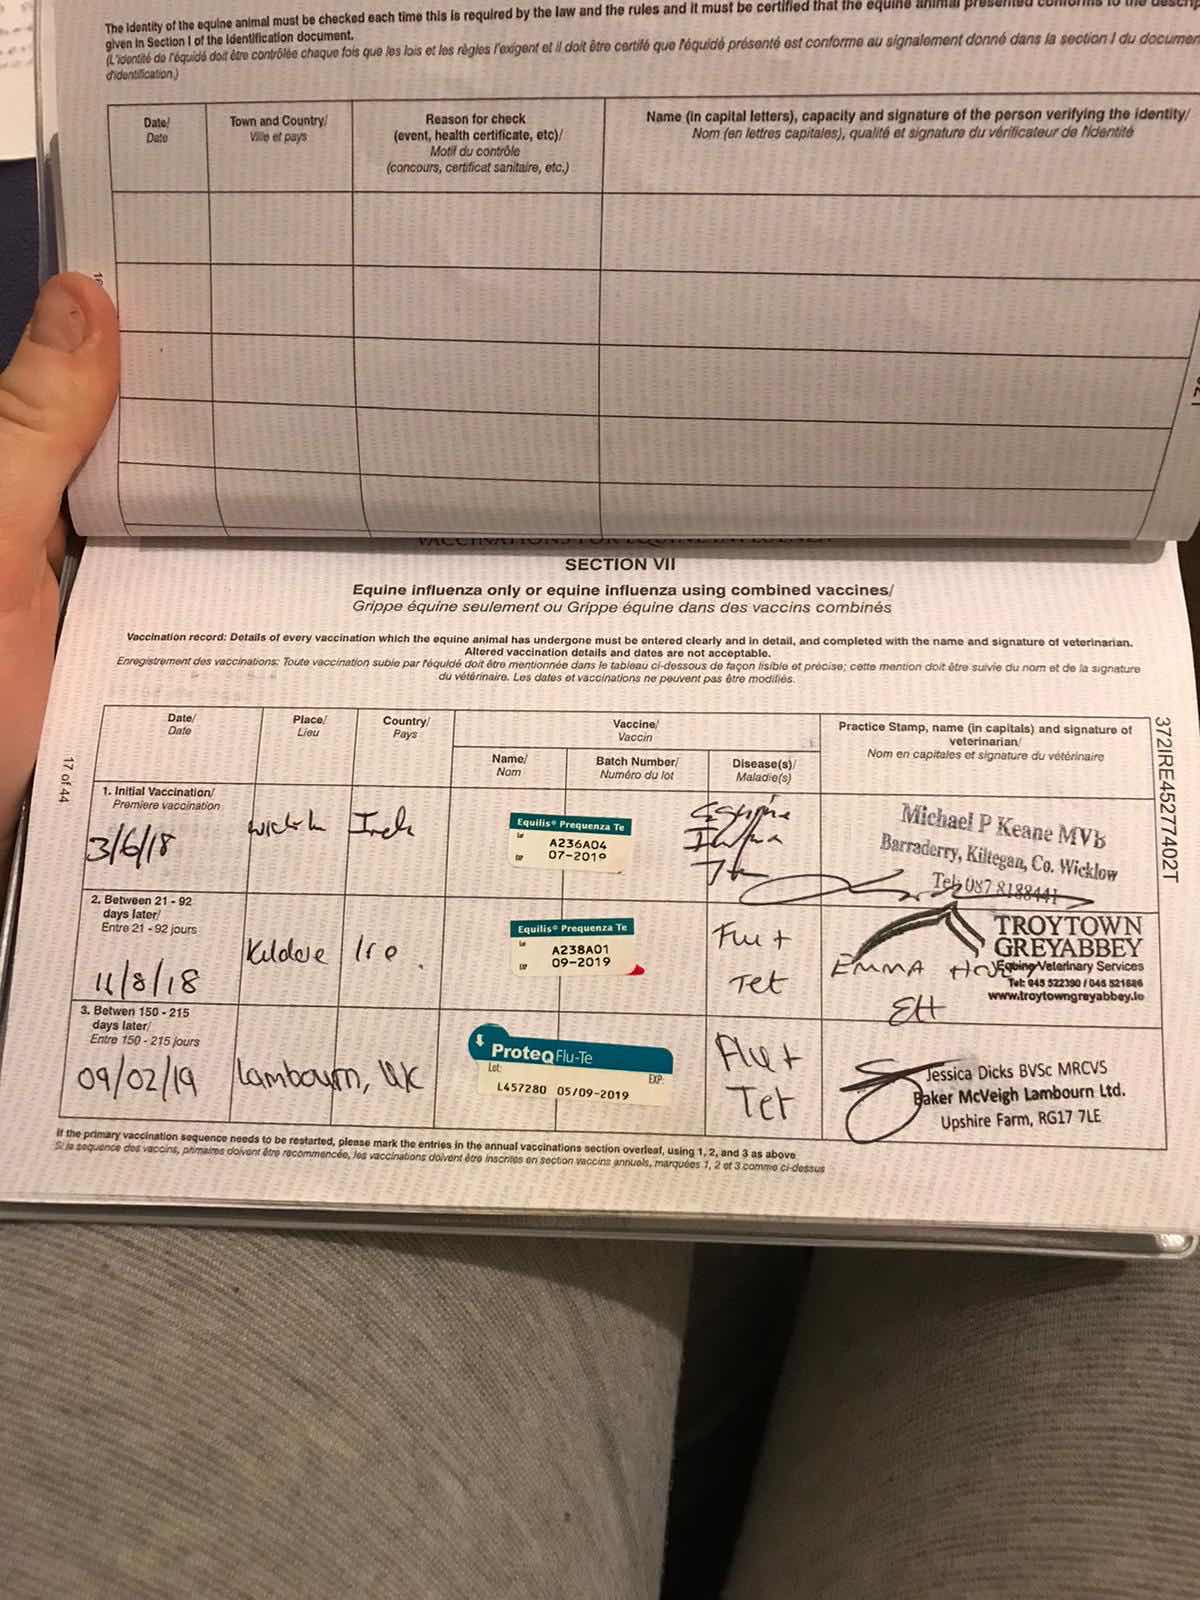 The identity of the equine animal must be checked each time this is required by the law and the rules and it must be certified that the equine animal presented conforms to the
given in Section I of the identification document.
(L'identité de l'équidé doit être contrôlée chaque fois que les lois et les règles l'exigent et il doit être certifé que l'équidé présenté est conforme au signalement donné dans la section I du
d'identification.)
Date/
Date
Town and Country/
Ville et pays
Reason for check
(event, health certificate, etc)/
Motif du contrôle
(concours, certificat sanitaire, etc.)
Name (in capital letters), capacity and signature of the person verifying the identity/
Nom (en lettres capitales), qualité et signature du vérificateur de l'identité
SECTION VII
Equine influenza only or equine influenza using combined vaccines/
Grippe équine seulement ou Grippe équine dans des vaccins combinés
Vaccination record: Details of every vaccination which the equine animal has undergone must be entered clearly and in detail, and completed with the name and signature of veterinarian.
Altered vaccination details and dates are not acceptable.
Enregistrement des vaccinations: Toute vaccination subie par l'équidé doit être mentionnée dans le tableau ci-dessous de façon lisible et précise; cette mention doit être suivie du nom et de la signature
du vétérinaire. Les dates et vaccinations ne peuvent pas être modifiés.
Date/
Date
Place/
Lieu
Country/
Pays
Vaccine/
Vaccin
Name/
Nom
Batch Number/
Numéro du lot
Disease(s)/
Maladie(s)
Practice Stamp, name (in capitals) and signature of
veterinarian/
Nom en capitales et signature du vétérinaire
1. Initial Vaccination/
Premiere vaccination
3/6/18
Equilis® Prequenza Te
A236A04
EXP 07-2019
Michael P Keane MVb
Barraderry, Kiltegan, Co. Wicklow
Tel: 087 8188441
2. Between 21 - 92
days later/
Entre 21 - 92 jours
11/8/18
Kildare
Ire
Equilis® Prequenza Te
A238A01
EXP 09-2019
Flu +
Tet
EMMA
EH
TROYTOWN
GREYABBEY
Equine Veterinary Services
Tel: 045 522390 / 045 521686
www.troytowngreyabbey.ie
3. Betwen 150 - 215
days later/
Entre 150 - 215 jours
09/02/19
Lambourn, UK
ProteqFlu-Te
Lot:
EXP:
L457280 05/09-2019
Flu +
Tet
Jessica Dicks BVSc MRCVS
Baker McVeigh Lambourn Ltd.
Upshire Farm, RG17 7LE
If the primary vaccination sequence needs to be restarted, please mark the entries in the annual vaccinations section overleaf, using 1, 2, and 3 as above
Si la sequence des vaccins, primaires doivent être recommencée, les vaccinations doivent être inscrites en section vaccins annuels, marquées 1, 2 et 3 comme ci-dessus
17 of 44
372IRE45277402T